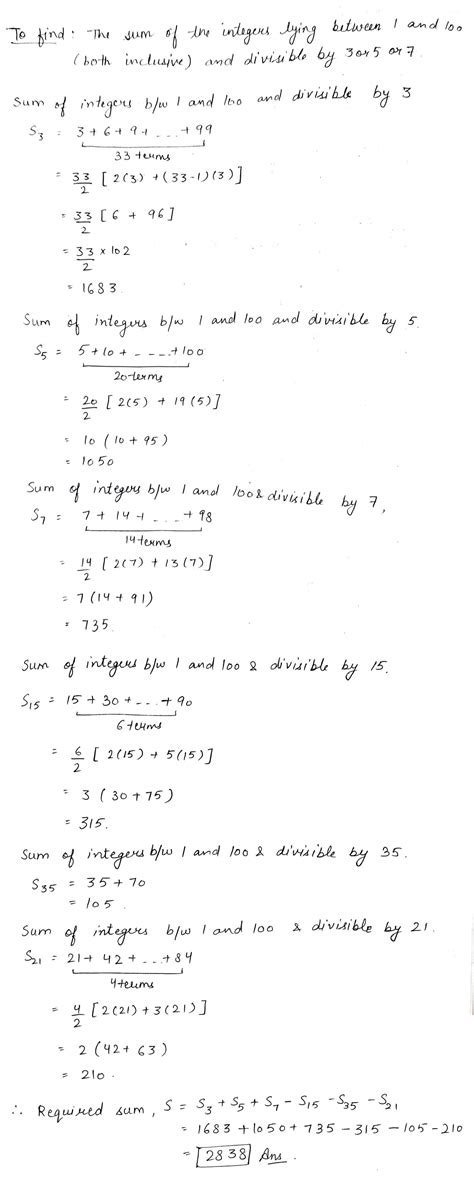 To find : The sum of the integers lying between 1 and 100
(both inclusive) and divisible by 3 or 5 or 7.
Sum of integers b/w 1 and 100 and divisible by 3
S₃ = 3 + 6 + 9 + ... + 99
33 terms
= 33/2 [ 2(3) + (33-1)(3) ]
= 33/2 [ 6 + 96 ]
= 33/2 × 102
= 1683.
Sum of integers b/w 1 and 100 and divisible by 5.
S₅ = 5 + 10 + - - - - + 100
20-terms
= 20/2 [ 2(5) + 19(5) ]
= 10 ( 10 + 95 )
= 1050
Sum of integers b/w 1 and 100 & divisible by 7,
S₇ = 7 + 14 + ... + 98
14 terms
= 14/2 [ 2(7) + 13(7) ]
= 7 (14 + 91)
= 735.
Sum of integers b/w 1 and 100 & divisible by 15.
S₁₅ = 15 + 30 + - .. + 90
6 terms
= 6/2 [ 2(15) + 5(15) ]
= 3 ( 30 + 75 )
= 315.
Sum of integers b/w 1 and 100 & divisible by 35.
S₃₅ = 35 + 70
= 105.
Sum of integers b/w 1 and 100 & divisible by 21.
S₂₁ = 21 + 42 + - .. + 84
4 terms
= 4/2 [ 2(21) + 3(21) ]
= 2 ( 42 + 63 )
= 210.
∴ Required sum, S = S₃ + S₅ + S₇ - S₁₅ - S₃₅ - S₂₁
= 1683 + 1050 + 735 - 315 - 105 - 210
= 2838 Ans.